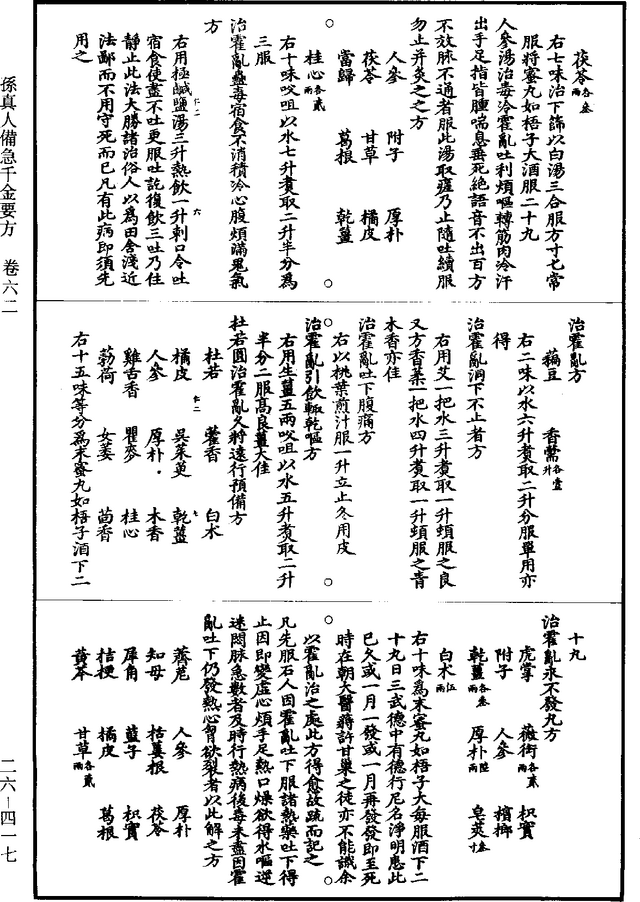 茯苓各叁兩
右七味治下篩以白湯三合服方寸匕常
服將蜜丸如梧子大酒服二十九
人參湯治毒冷霍亂吐利煩嘔轉筋肉冷汗
出手足指皆腫喘息垂死絕語音不出百方
不放脉不通者服此湯取瘥乃止隨吐續服
勿止并灸之之方
人參 附子 厚朴
茯苓 甘草 橘皮
當歸 葛根 乾薑
桂心各貳兩
右十味㕮咀以水七升煮取二升半分爲
三服
治霍亂蠱毒宿食不消積冷心腹煩滿鬼氣
方
右用極鹹鹽湯三升熱飲一升刺口令吐
宿食使盡不吐更服吐訖復飲三吐乃住
靜止此法大勝諸治俗人以爲田舍淺近
法鄙而不用守死而已凡有此病即須先
用之
治霍亂方
藊豆 香薷各壹升
右二味以水六升煮取二升分服單用亦
得
治霍亂洞下不止者方
右用艾一把水三升煮取一升頓服之良
又方香葇一把水四升煮取一升頓服之青
木香亦佳
治霍亂吐下腹痛方
右以桃葉煎汁服一升立止冬用皮
治霍亂引飲輒乾嘔方
右用生薑五兩㕮咀以水五升煮取二升
半分二服高良薑大佳
杜若圓治霍亂久將遠行預備方
杜若 藿香 白术
橘皮 吳茱萸 乾薑
人參 厚朴 木香
雞舌香 瞿麥 桂心
薄荷 女萎 茴香
右十五味等分爲末蜜丸如梧子酒下二
十九
治霍亂永不發丸方
虎掌 薇銜各貳兩 枳實
附子 人參 檳榔
乾薑各叁兩 厚朴陸兩 皂莢叁寸
白术伍兩
右十味爲末蜜丸如梧子大每服酒下二
十九日三武德中有德行尼名淨明患此
已久或一月一發或一月再發發即至死
時在朝大醫蔣許甘巢之徒亦不能識余
以霍亂治之處此方得愈故疏而記之
凡先服石人因霍亂吐下服諸熱藥吐下得
止因即變虛心煩手足熱口燥欲得水嘔逆
迷悶脉急數者及時行熱病後毒未盡因霍
亂吐下仍發熱心胷欲裂者以此解之方
薺苨 人參 厚朴
知母 栝蔞根 茯苓
犀角 藍子 枳實
桔梗 橘皮 葛根
黃芩 甘草各貳兩
孫真人備急千金要方 卷六二
二六—四一七